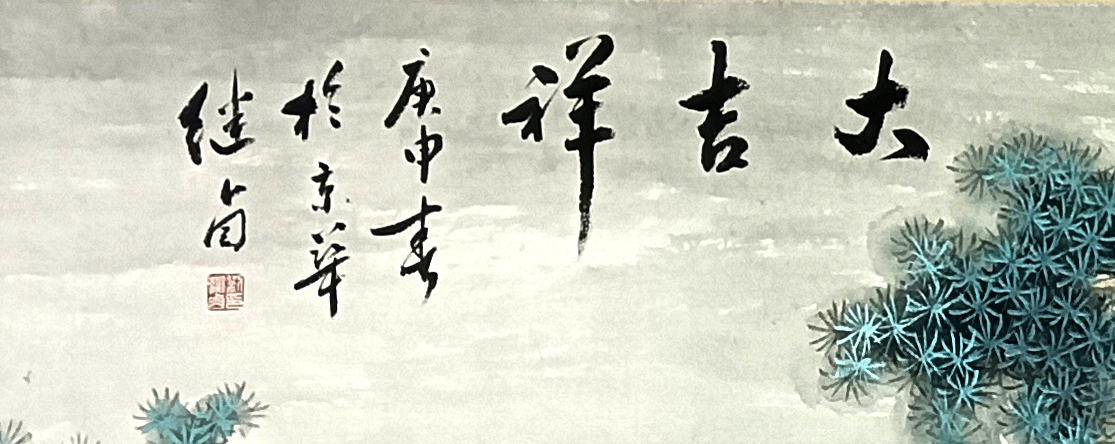 大吉祥
庚申春
於京華
继卣